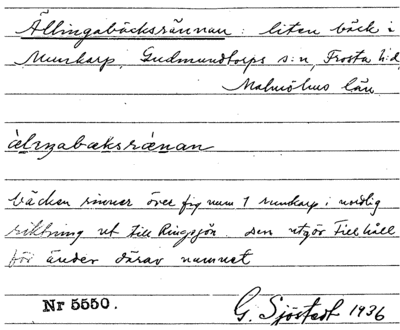 Ällingabäcksrännan: liten bäck i
Munkarp, Gudmundtorps s:n, Frosta h:d,
Malmöhus län
älıŋabæksrænan
bäcken rinner över fig num 1 munkarp i nordlig
riktning ut till Ringsjön. den utgör tillhåll
för änder därav namnet
Nr 5550. G. Sjöstedt 1936